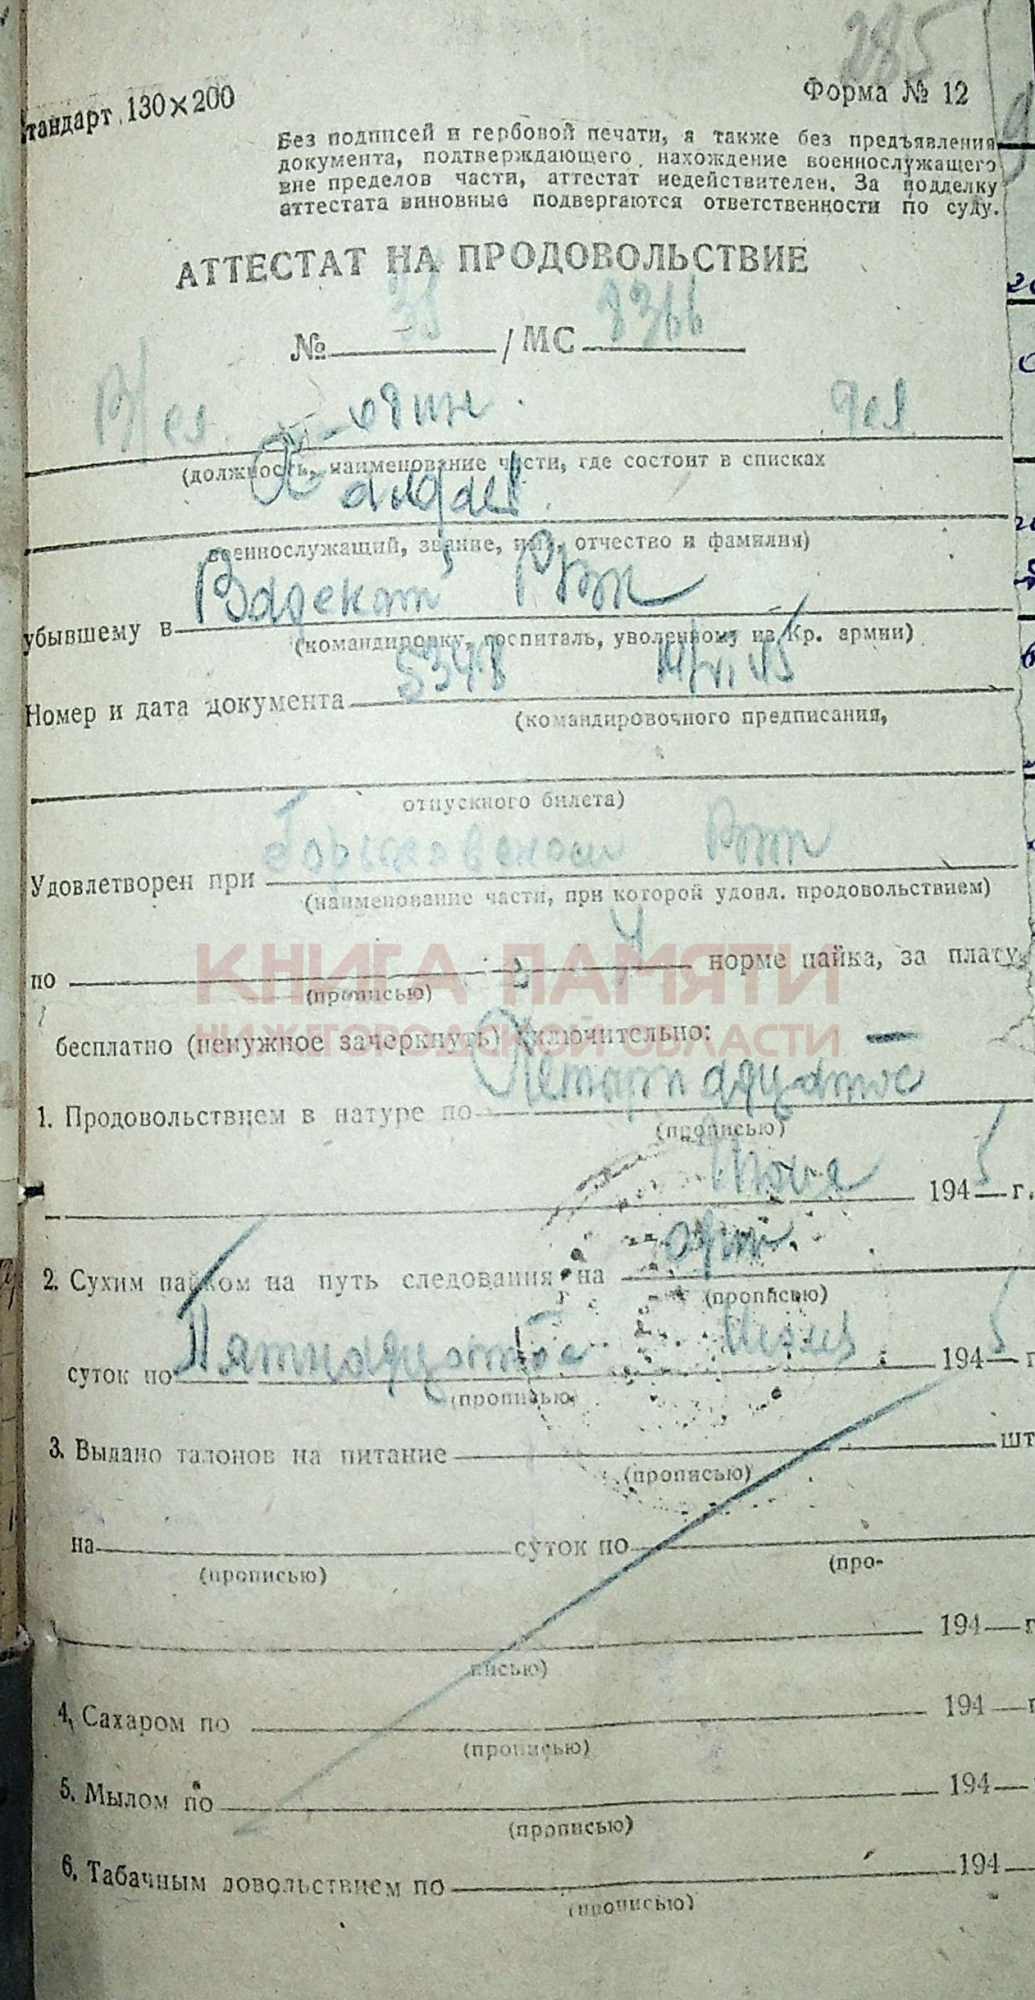 285
Стандарт 130×200
Форма № 12
Без подписей и гербовой печати, а также без предъявления
документа, подтверждающего нахождение военнослужащего
вне пределов части, аттестат недействителен. За подделку
аттестата виновные подвергаются ответственности по суду.
АТТЕСТАТ НА ПРОДОВОЛЬСТВИЕ
№ 35 / МС 8366
(должность, наименование части, где состоит в списках
военнослужащий, звание, имя, отчество и фамилия)
убывшему в РВК
(командировку, госпиталь, уволенному из Кр. армии)
Номер и дата документа 5348 14/VI 45
(командировочного предписания,
отпускного билета)
Удовлетворен при Горьковском
(наименование части, при которой удовл. продовольствием)
по 4 норме пайка, за плату,
(прописью)
КНИГА ПАМЯТИ
НИЖЕГОРОДСКОЙ ОБЛАСТИ
бесплатно (ненужное зачеркнуть) включительно:
1. Продовольствием в натуре по Четырнадцатое
(прописью)
Июня 1945 г.
2. Сухим пайком на путь следования на одни
(прописью)
суток по Пятнадцатое Июня 1945 г
(прописью)
3. Выдано талонов на питание шт
(прописью)
на суток по
(прописью) (про-
194 г
писью)
4. Сахаром по 194 г
(прописью)
5. Мылом по 194
(прописью)
6. Табачным довольствием по 194
(прописью)